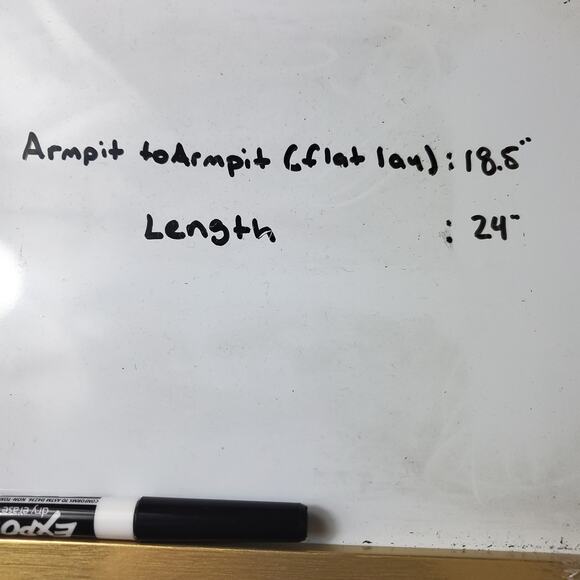 Armpit to Armpit (flat lay) : 18.5"
Length : 24"
CONFORMS TO ASTM D4236 NON-TOXIC
dry erase
EXPO